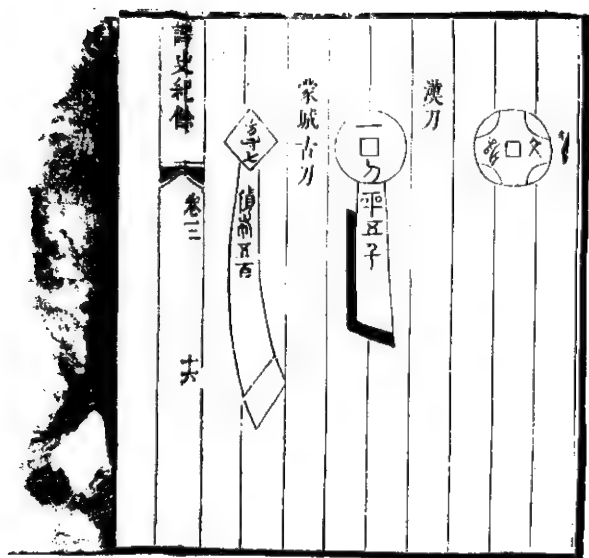 文
漢刀
一刀
平五千
蒙城古刀
五百
讀史紀餘
卷三
十六